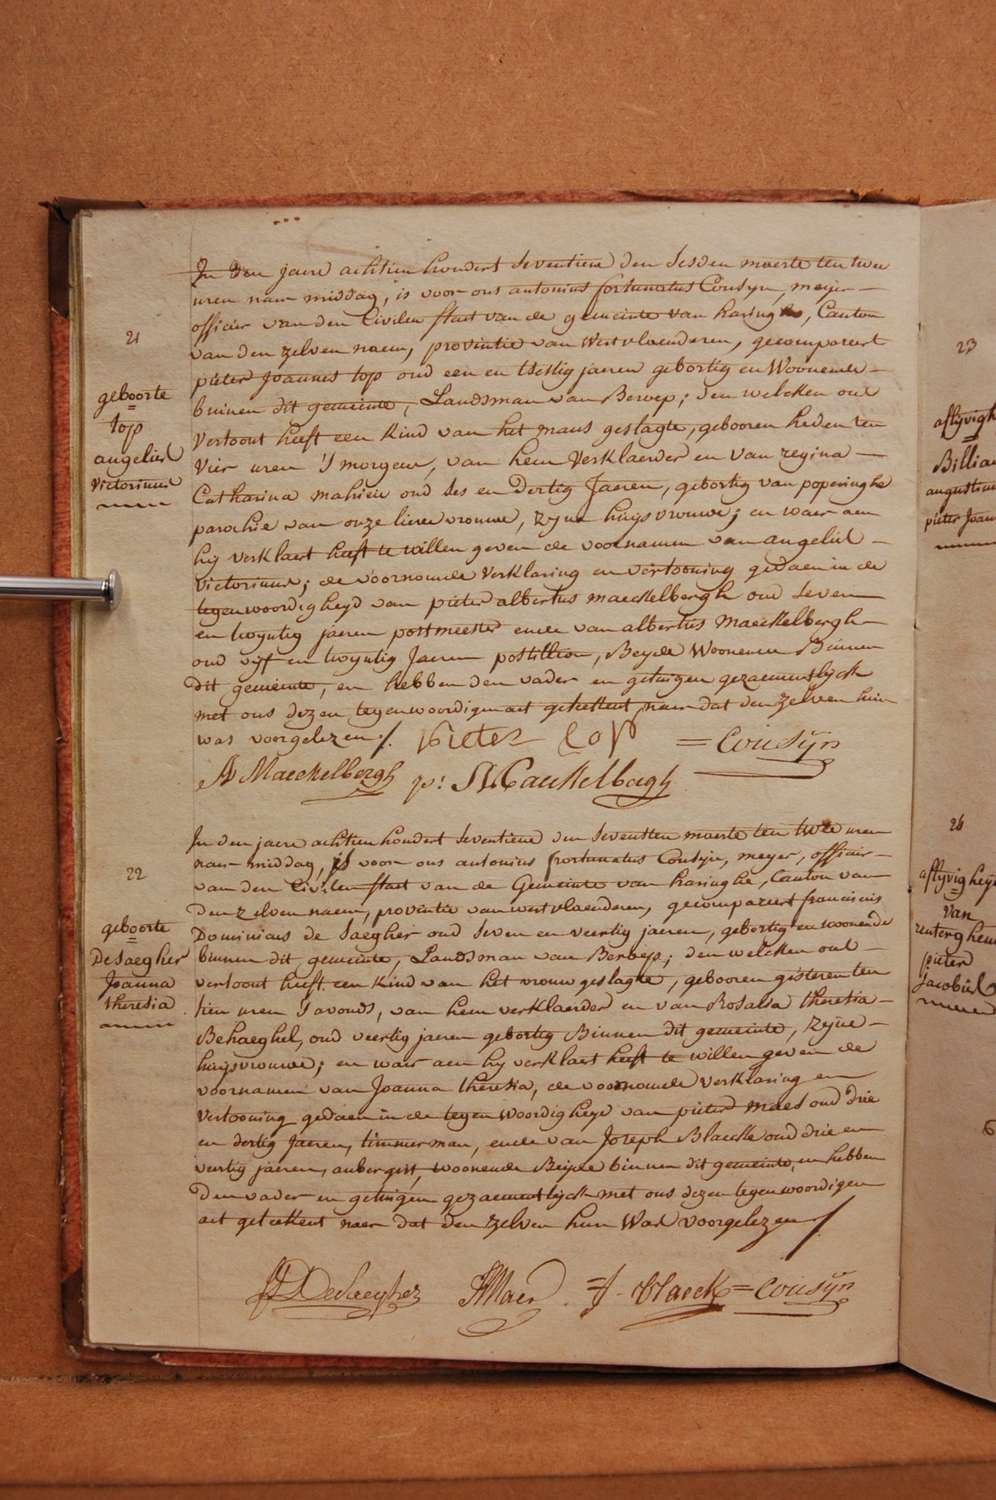 21
geboorte
top
angelus
Victorinus
In den jaere achtien hondert seventiene den sesden maerte ten twee
uren naer middag, is voor ons antonius fortunatus Cousyn, meyer
officier van den Civilen staet van de gemeinte van haringhe, Canton
van den zelven naem, provintie van westvlaenderen, gecompareert
pieter joannes top oud een en tsestig jaeren gebortig en Woonende
binnen dit gemeinte, Landsman van Beroep; den welcken ons
vertoont heeft een kind van het mans geslagte, gebooren heden ten
vier uren 's morgens, van hem verklaerder en van regina
Catharina mahieu oud ses en dertig Jaeren, gebortig van poperinghe
parochie van onze lieve vrouwe, zyne huysvrouwe; en waer aen
hy verklaert heeft te willen geven de voornamen van angelus
victorinus; de voornoemde verklaring en vertooning gedaen in de
tegenwoordigheyd van pieter albertus maeckelbergh oud seven
en twyntig jaeren postmeester ende van albertus Maeckelbergh
oud vyf en twyntig Jaeren postillion, Beyde Woonende Binnen
dit gemeinte, en hebben den vader en getuigen gezaementlyck
met ons dezen tegenwoordigen act geteekent naer dat den zelven hun
was voorgelezen ./.
pieter top = Cousyn
A Maeckelbergh p: A Maeckelbergh
22
geboorte
De Saegher
Joanna
theresia
In den jaere achtien hondert seventiene den sevensten maerte ten twee uren
naer middag, is voor ons antonius fortunatus Cousyn, meyer, officier
van den Civilen staet van de Gemeinte van haringhe, Canton van
den zelven naem, provintie van westvlaenderen, gecompareert franciscus
Dominicus de Saegher oud seven en veertig jaeren, gebortig en woonende
binnen dit gemeinte, Landsman van Beroep; den welcken ons
vertoont heeft een kind van het vrouw geslagte, gebooren gisteren ten
tien uren 's avonds, van hem verklaerder en van Rosalia theresia
Behaeghel, oud veertig jaeren gebortig Binnen dit gemeinte, zyne
huysvrouwe; en waer aen hy verklaert heeft te willen geven de
voornamen van Joanna theresia, de voornoemde verklaring en
vertooning gedaen in de tegenwoordigheyd van pieter maes oud drie
en dertig Jaeren, timmerman, ende van Joseph Blaecke oud drie en
veertig jaeren, aubergist, woonende Beyde binnen dit gemeinte, en hebben
den vader en getuigen gezaementlyck met ons dezen tegenwoordigen
act geteekent naer dat den zelven hun Was voorgelezen ./.
FD Desaegher PMaes J. Blaeck = Cousyn
23
aflyvigh
Billia
augustin
pieter Joan
26
aflyvigheyd
van
renterghem
pieter
Jacobus